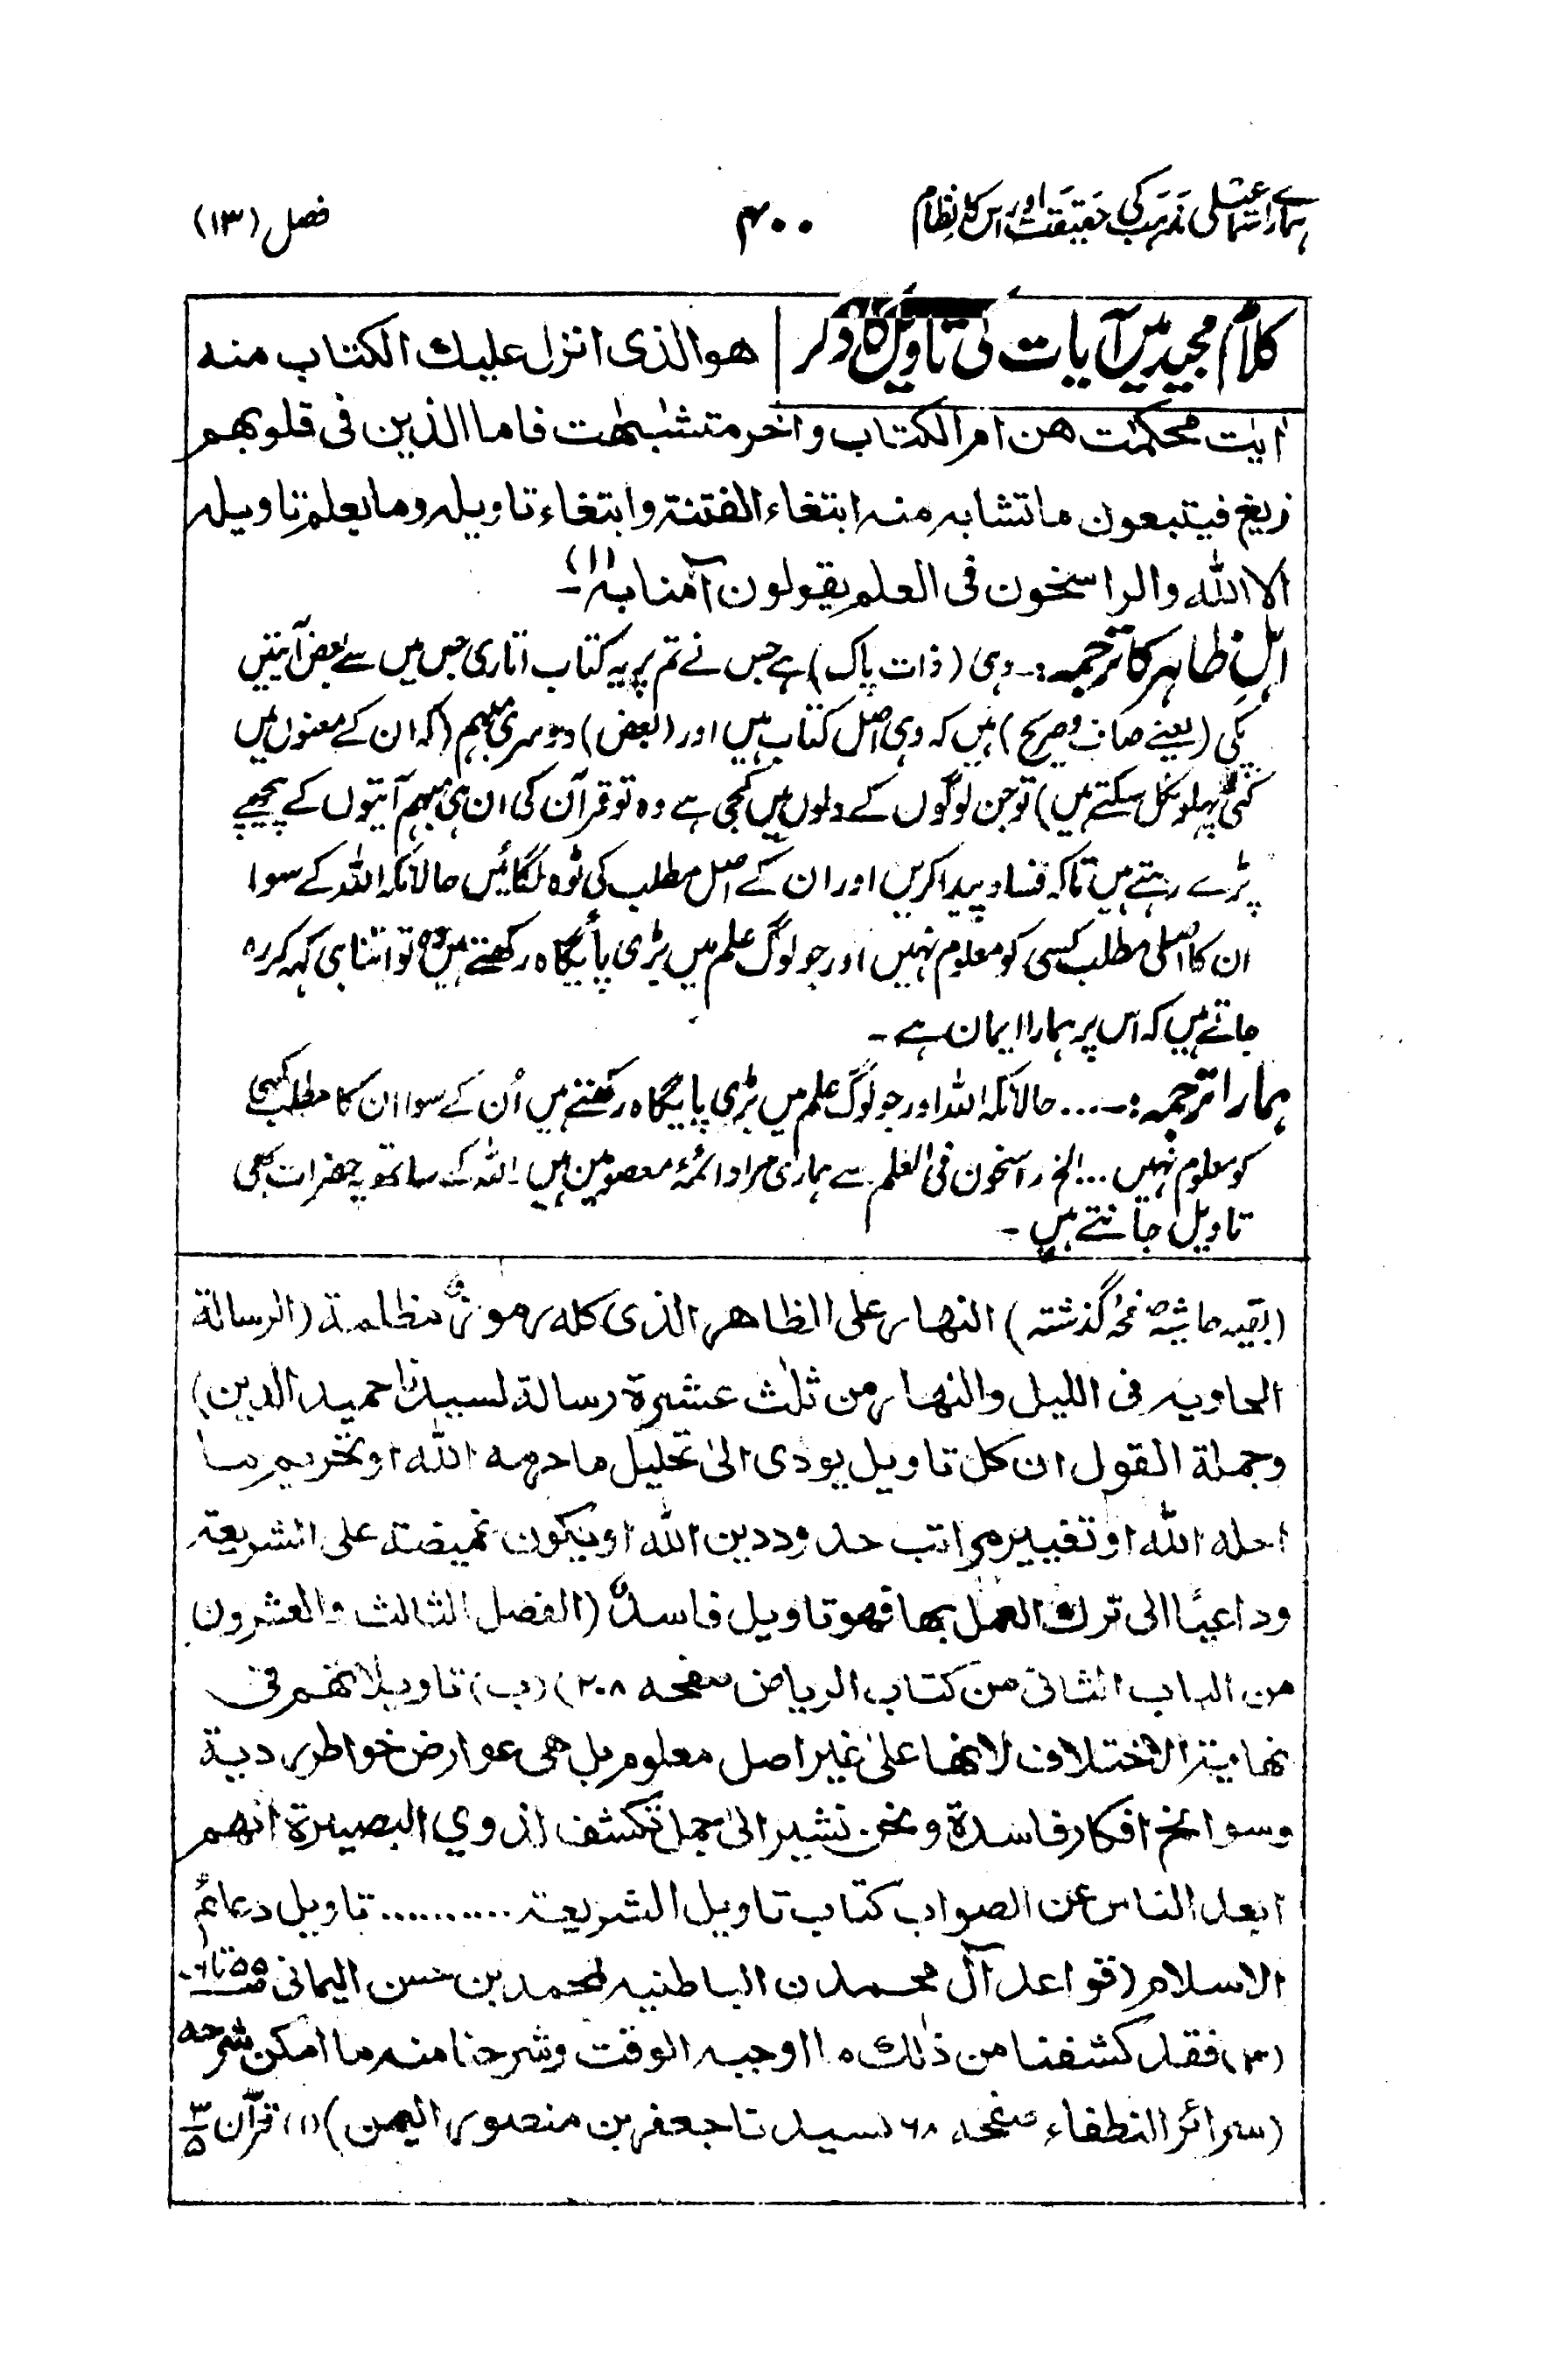 ہمارے اسماعیلی مذہب کی حقیقت اور اس کا نظام ۴۰۰ فصل (۱۳)
کلام مجید میں آیات کی تاویل کا ذکر | هو الذی انزل علیك الکتاب منه
اٰیٰت محکمٰت هن ام الکتاب واخر متشٰبهٰت فاما الذین فی قلوبهم
زیغ فیتبعون ما تشابه منه ابتغاء الفتنة وابتغاء تاویله وما یعلم تاویله
الا الله والراسخون فی العلم یقولون آمنا به (۱)۔
اہلِ ظاہر کا ترجمہ :۔ وہی (ذات پاک) ہے جس نے تم پر یہ کتاب اتاری جس میں سے بعض آیتیں
پکی (یعنے صاف و صریح) ہیں کہ وہی اصل کتاب ہیں اور (بعض) دوسری مبہم (کہ ان کے معنوں میں
کئی پہلو نکل سکتے ہیں) تو جن لوگوں کے دلوں میں کجی ہے وہ تو قرآن کی ان ہی مبہم آیتوں کے پیچھے
پڑے رہتے ہیں تاکہ فساد پیدا کریں اور ان کے اصل مطلب کی ٹوہ لگائیں حالانکہ اللہ کے سوا
ان کا اصلی مطلب کسی کو معلوم نہیں اور جو لوگ علم میں بڑی پائیگاہ رکھتے ہیں وہ تو اتنا ہی کہہ کر رہ
جاتے ہیں کہ اس پر ہمارا ایمان ہے۔
ہمارا ترجمہ :۔ ... حالانکہ اللہ اور جو لوگ علم میں بڑی پایگاہ رکھتے ہیں اُن کے سوا ان کا مطلب کسی
کو معلوم نہیں ... الخ راسخون فی العلم سے ہماری مراد ائمۂ معصومین ہیں۔ اللہ کے ساتھ یہ حضرات بھی
تاویل جانتے ہیں۔
(بقیہ حاشیہ صفحۂ گذشتہ) النهار علی الظاهر الذی کله رموزٌ مظلمة (الرسالة
الحاویه فی اللیل والنهار من ثلٰث عشرة رسالة لسیدنا حمید الدین)
وجملة القول ان کل تاویل یودی الیٰ تحلیل ما حرمه الله او تحریم ما
احله الله او تغییر مراتب حدود دین الله او یکون نمیضة علی الشریعة
وداعیًا الی ترك العمل بها فهو تاویل فاسدٌ (الفصل الثالث والعشرون
من الباب الثانی من کتاب الریاض صفحه ۲۰۸) (ب) تاویلاتهم فی
نهایة الاختلاف لانها علیٰ غیر اصل معلوم بل هی عوارض خواطر ردیة
وسوانح افکار فاسدة ونحن نشیر الیٰ جمل تکشف لذوي البصیرة انهم
ابعد الناس عن الصواب کتاب تاویل الشریعة .......... تاویل دعائم
الاسلام (قواعد آل محمد ن الباطنیه لمحمد بن حسن الیمانی
(۳) فقد کشفنا من ذٰلك ما اوجبه الوقت وشرحنا منه ما امکن شرحه
(سرائر النطقاء صفحه ۶۸ لسیدنا جعفر بن منصور الیمن) (۱) قرآن ۳/۵